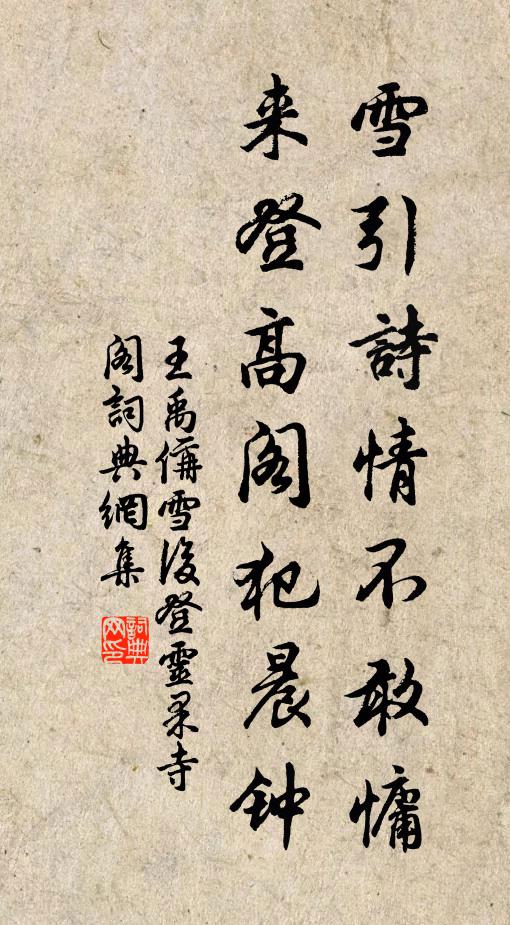 雪引詩情不敢慵
来登高阁犯晨钟
王禹偁雪後登靈果寺
阁詞典網集
詞典
网印